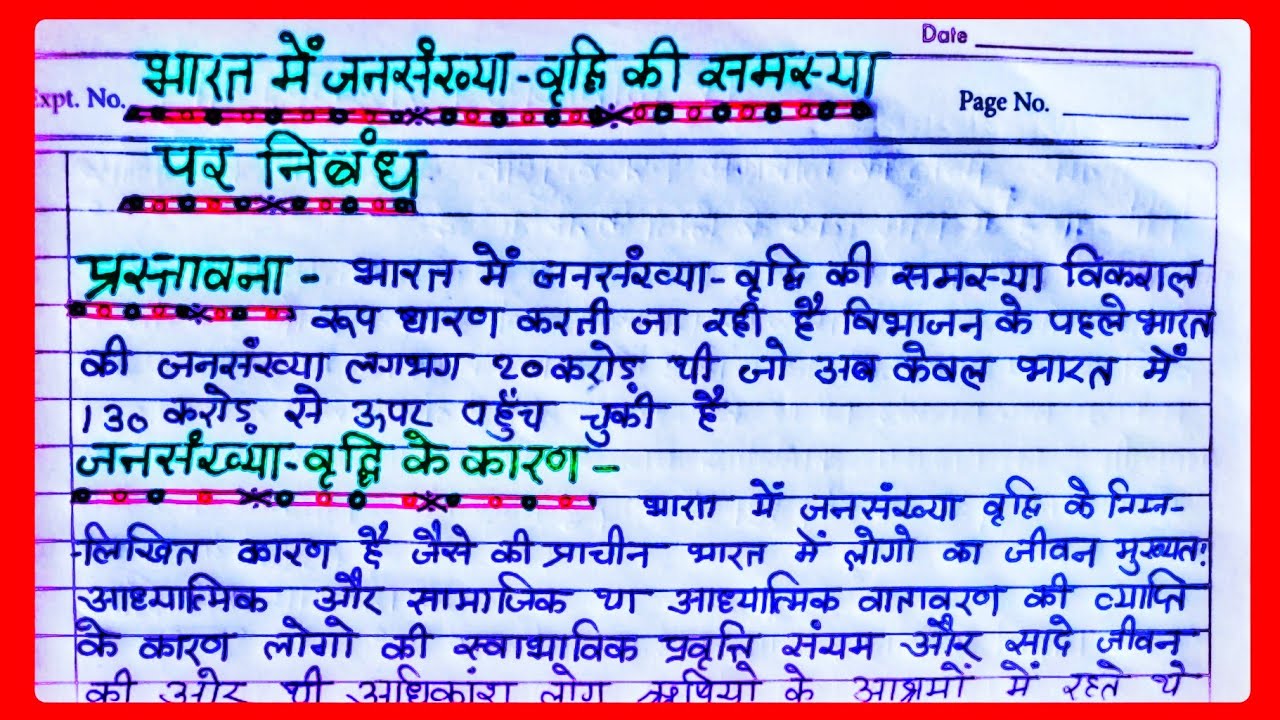 Date
भारत में जनसंख्या-वृद्धि की समस्या
Expt. No.
Page No.
पर निबंध
प्रस्तावना - भारत में जनसंख्या-वृद्धि की समस्या विकराल
रूप धारण करती जा रही है विभाजन के पहले भारत
की जनसंख्या लगभग २० करोड़ थी जो अब केवल भारत में
130 करोड़ से ऊपर पहुँच चुकी है
जनसंख्या-वृद्धि के कारण -
भारत में जनसंख्या वृद्धि के निम्न-
-लिखित कारण है जैसे की प्राचीन भारत में लोगो का जीवन मुख्यत:
आध्यात्मिक और सामाजिक था आध्यात्मिक वातावरण की व्याप्ति
के कारण लोगो की स्वाभाविक प्रवृत्ति संयम और सादे जीवन
की ओर थी अधिकांश लोग ऋषियो के आश्रमों में रहते थे